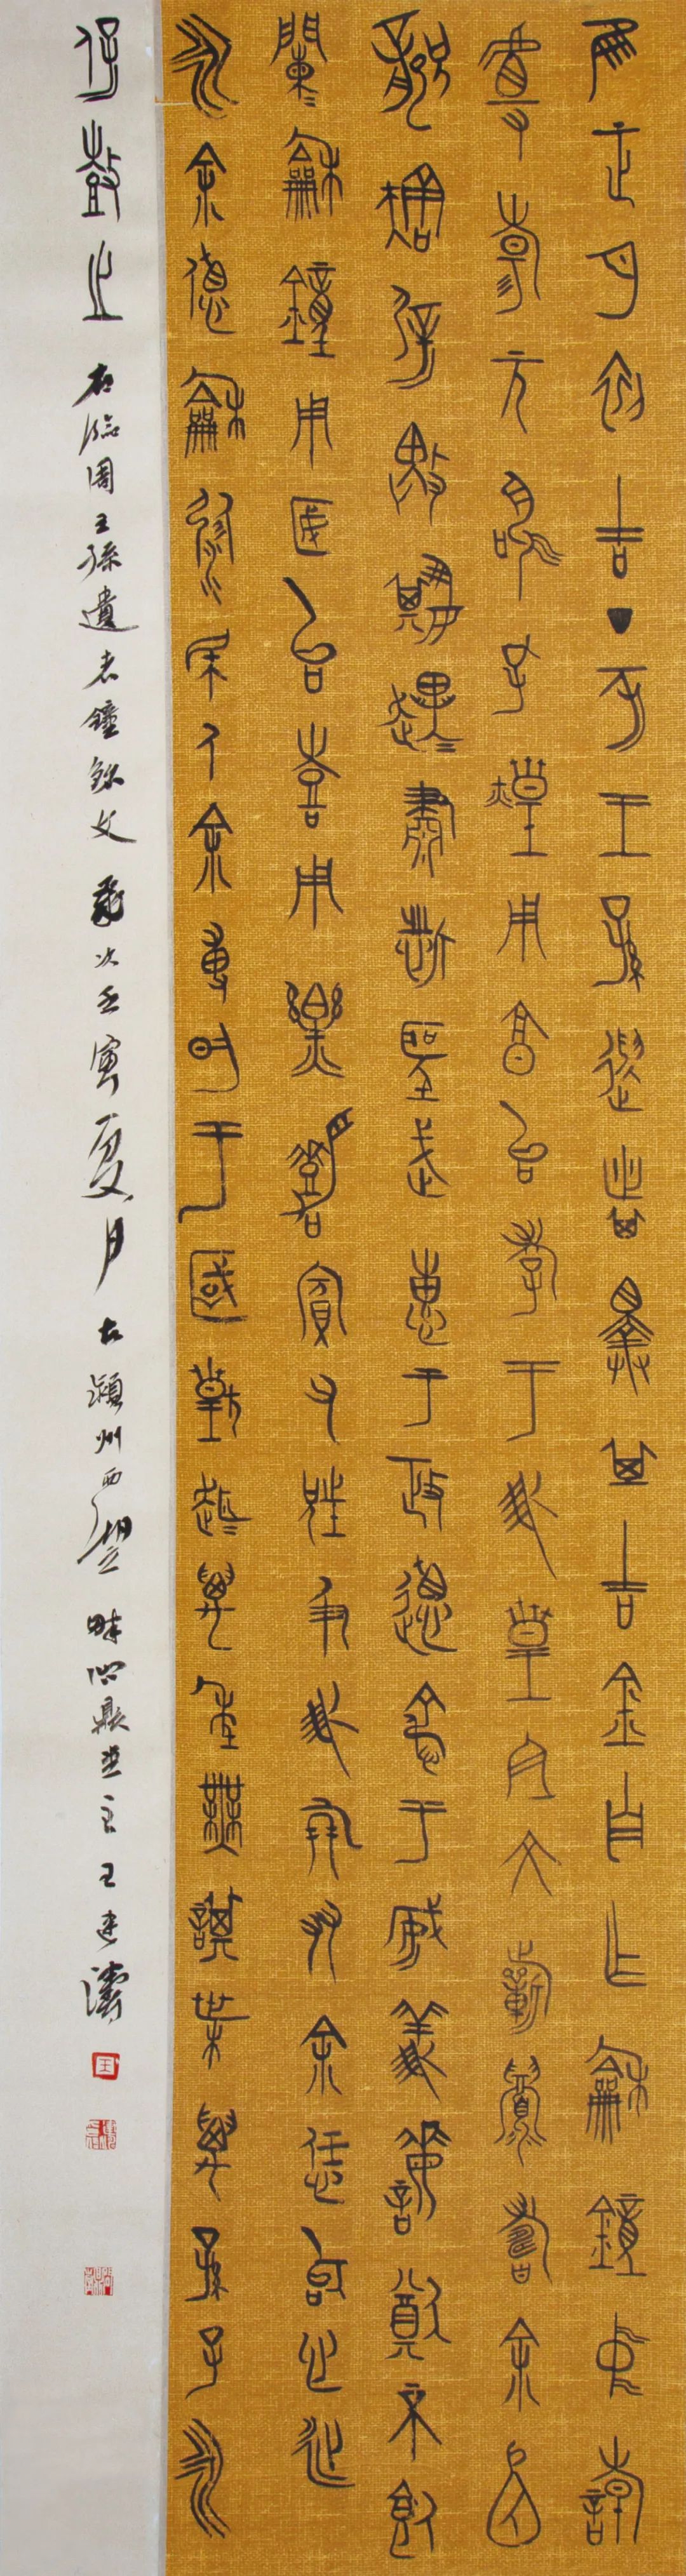 隹正月初吉丁亥王孫遺者擇其吉金自乍龢鐘中翰
虘昜元鳴孔皇用享台孝于我皇且文考用祈眉壽余函
龏㝬屖畏忌趩趩肅哲聖武惠于政德淑于威義誨猷不飤
闌闌龢鐘用匽台喜用樂嘉賓父兄及我倗友余恁台心延
永余德龢溺民人余尃昀于國皝皝趩趩萬年無諆枼萬孫子永
保鼓之 右臨周王孫遺者鐘銘文 歲次壬寅夏月古潁州西 主王建濤